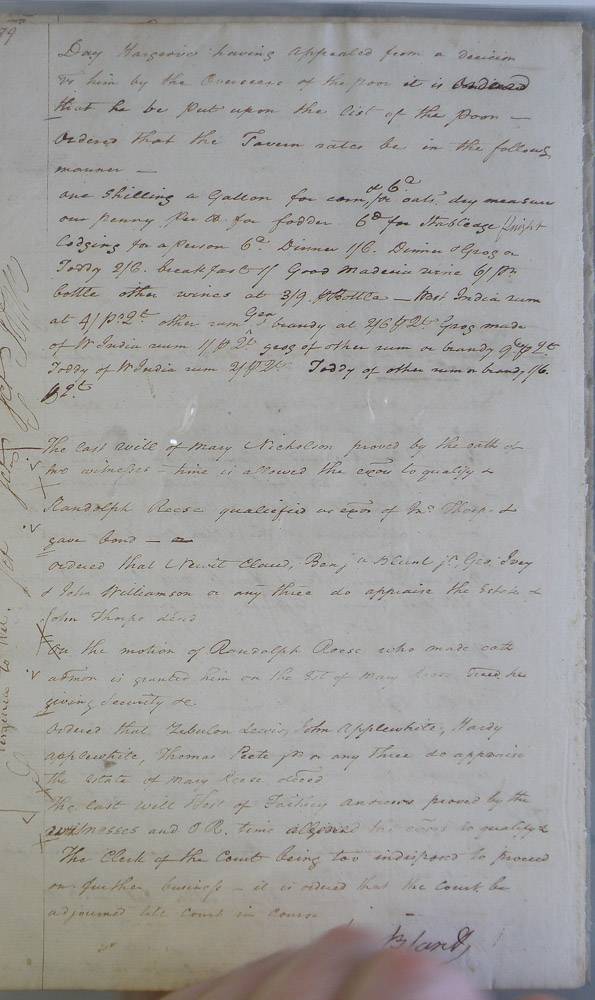 Day Hargrove having appealed from a decision
by him by the Overseers of the poor it is Ordered
that he be put upon the list of the poor —
Ordered that the Tavern rates be in the follow
manner —
one Shilling a Gallon for corn, & 6d for oats, dry measure
one penny per lb for fodder 6d for Stableage
Lodging for a person 6d. Dinner 1/6. Dinner & Grog or
Toddy 2/6. breakfast 1/ Good Madeira wine 6/ pr
bottle other wines at 3/9. p Bottle — West India rum
at 4/ pr Qt other rum Gen brandy at 2/6 p Qt Grog made
of W India rum 1/ p Qt grog of other rum or brandy 9d p Qt
Toddy of W India rum 2/ p Qt Toddy of other rum or brandy 1/6.
p Qt.
The last will of Mary Nicholson proved by the oath of
two witnesses – time is allowed the exors to qualify &
Randolph Reese qualified as exor of Jno Thorp &
gave bond —
ordered that Newit Claud, Benja Blunt jr, Geo. Ivey
& John Williamson or any three do appraise the Estate of
John Thorpe decd
On the motion of Randolph Reese who made oath
admon is granted him on the Est of Mary Reese Decd, he
giving Security &c.
Ordered that Zebulon Lewis, John Applewhite, Hardy
Applewhite, Thomas Peete jr or any three do appraise
the Estate of Mary Reese decd
The last will & Test of Andrews proved by the
witnesses and O R. time allowed the exors to qualify &
The Clerk of the Court being too indisposed to proceed
on further business – it is ordered that the Court be
adjourned till Court in Course